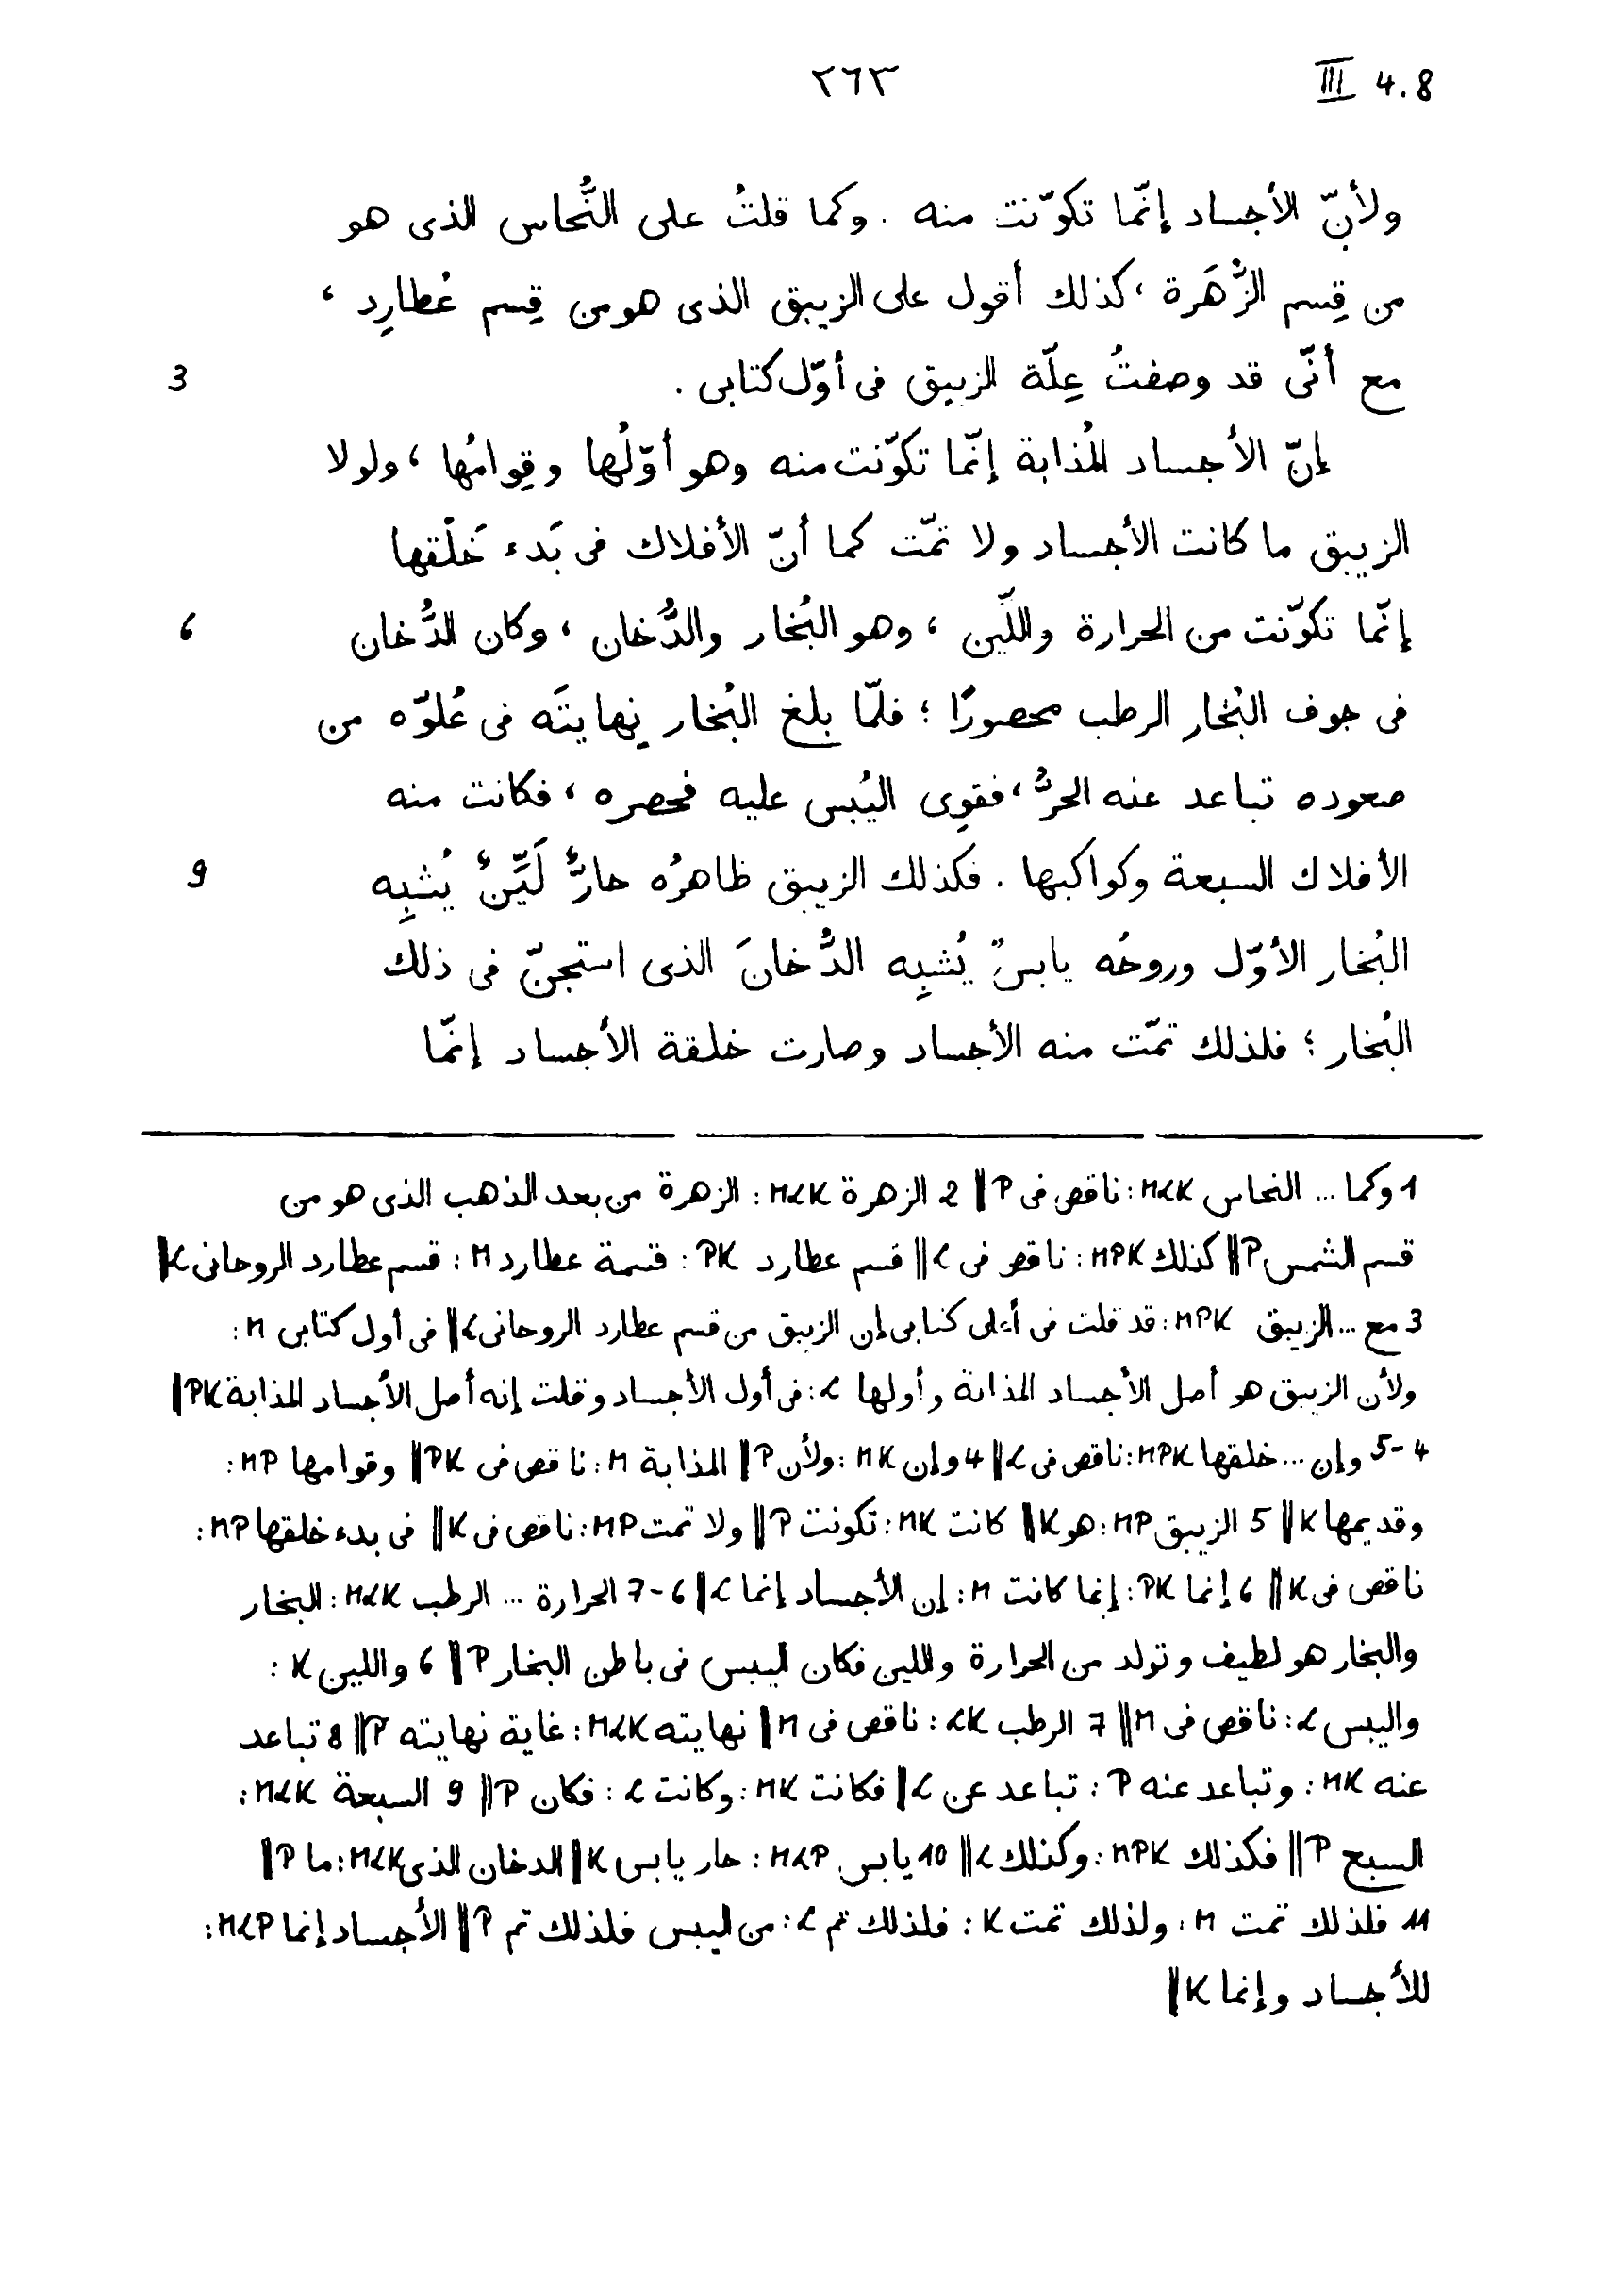 III 4.8 ٢٦٣
ولأنّ الأجساد إنّما تكوّنت منه . وكما قلتُ على النُّحاس الذى هو
من قِسم الزُّهَرة ، كذلك أقول على الزيبق الذى هو من قِسم عُطارِد ،
مع أنّى قد وصفتُ عِلّة الزيبق فى أوّل كتابى . 3
إنّ الأجساد المُذابة إنّما تكوّنت منه وهو أوّلُها وقِوامُها ، ولولا
الزيبق ما كانت الأجساد ولا تمّت كما أنّ الأفلاك فى بَدء خَلْقها
إنّما تكوّنت من الحرارة واللّين ، وهو البُخار والدُّخان ، وكان الدُّخان 6
فى جوف البُخار الرطب محصورًا ؛ فلمّا بلغ البُخار نِهايتَه فى عُلوّه من
صعوده تباعد عنه الحرُّ ، فقوِى اليُبس عليه فحصره ، فكانت منه
الأفلاك السبعة وكواكبها . فكذلك الزيبق ظاهرُه حارٌّ لَيِّنٌ يُشبِه 9
البُخار الأوّل وروحُه يابسٌ يُشبِه الدُّخانَ الذى استجنّ فى ذلك
البُخار ؛ فلذلك تمّت منه الأجساد وصارت خلقة الأجساد إنّما
1 وكما ... النحاس MLK : ناقص فى P ‖ 2 الزهرة MLK : الزهرة من بعد الذهب الذى هو من
قسم الشمس P ‖ كذلك MPK : ناقص فى L ‖ قسم عطارد PK : قسمة عطارد M : قسم عطارد الروحانى L ‖
3 مع ... الزيبق MPK : قد قلت فى أعلى كتابى إن الزيبق من قسم عطارد الروحانى L ‖ فى أول كتابى M :
ولأن الزيبق هو أصل الأجساد المذابة وأولها L : فى أول الأجساد وقلت إنه أصل الأجساد المذابة PK ‖
4-5 وإن ... خلقها MPK : ناقص فى L ‖ 4 وإن MK : ولأن P ‖ المذابة M : ناقص فى PK ‖ وقوامها MP :
وقديمها K ‖ 5 الزيبق MP : هو K ‖ كانت MK : تكونت P ‖ ولا تمت MP : ناقص فى K ‖ فى بدء خلقها MP :
ناقص فى K ‖ 6 إنما PK : إنما كانت M : إن الأجساد إنما L ‖ 6-7 الحرارة ... الرطب MLK : البخار
والبخار هو لطيف وتولد من الحرارة واللين فكان اليبس فى باطن البخار P ‖ 6 واللين K :
واليبس L : ناقص فى M ‖ 7 الرطب LK : ناقص فى M ‖ نهايته MLK : غاية نهايته P ‖ 8 تباعد
عنه MK : وتباعد عنه P : تباعد عن L ‖ فكانت MK : وكانت L : فكان P ‖ 9 السبعة MLK :
السبع P ‖ فكذلك MPK : وكذلك L ‖ 10 يابس MLP : حار يابس K ‖ الدخان الذى MLK : ما P ‖
11 فلذلك تمت M : ولذلك تمت K : فلذلك تم L : من اليبس فلذلك تم P ‖ الأجساد إنما MLP :
للأجساد وإنما K ‖